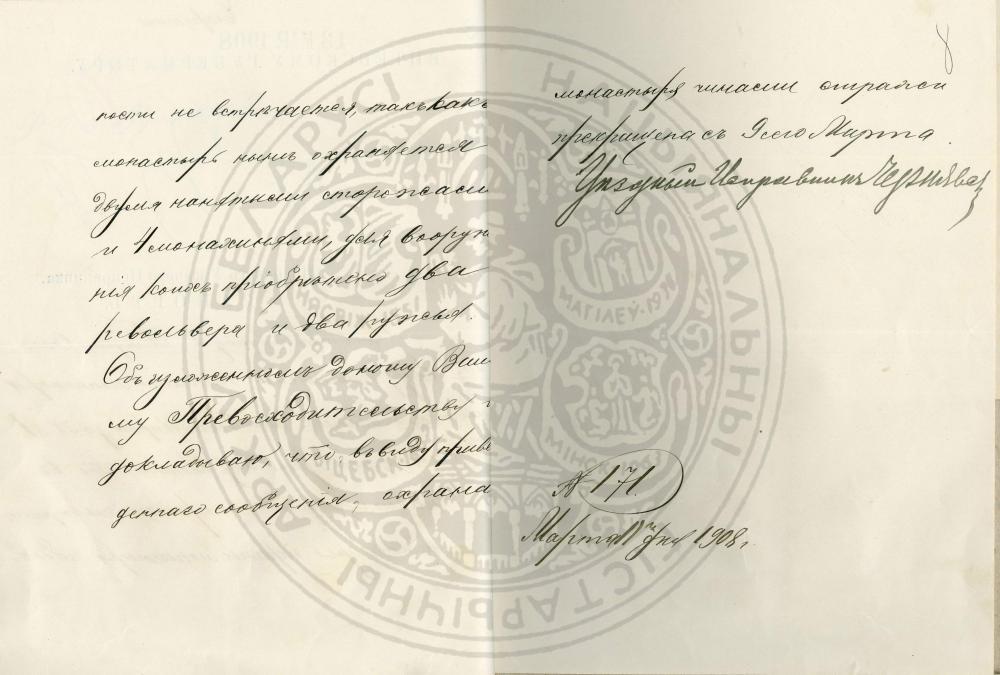 8
ности не встрѣчается, такъ какъ
монастырь нынѣ охраняется
двумя нанятыми сторожами
и 4 монахинями, для вооруже
нія коихъ пріобрѣтено два
револьвера и два ружья.
Объ изложенномъ доношу Ваше
му Превосходительству и
докладываю, что, въ виду приве
деннаго сообщенія, охрана
монастыря чинами стражи
прекращена съ 9 сего Марта.
Уѣздный Исправникъ
№ 171.
Марта дня 1908 г.
НАЦЫЯНАЛЬНЫ
ГІСТАРЫЧНЫ
АРХІЎ БЕЛАРУСІ
МАГІЛЕЎ